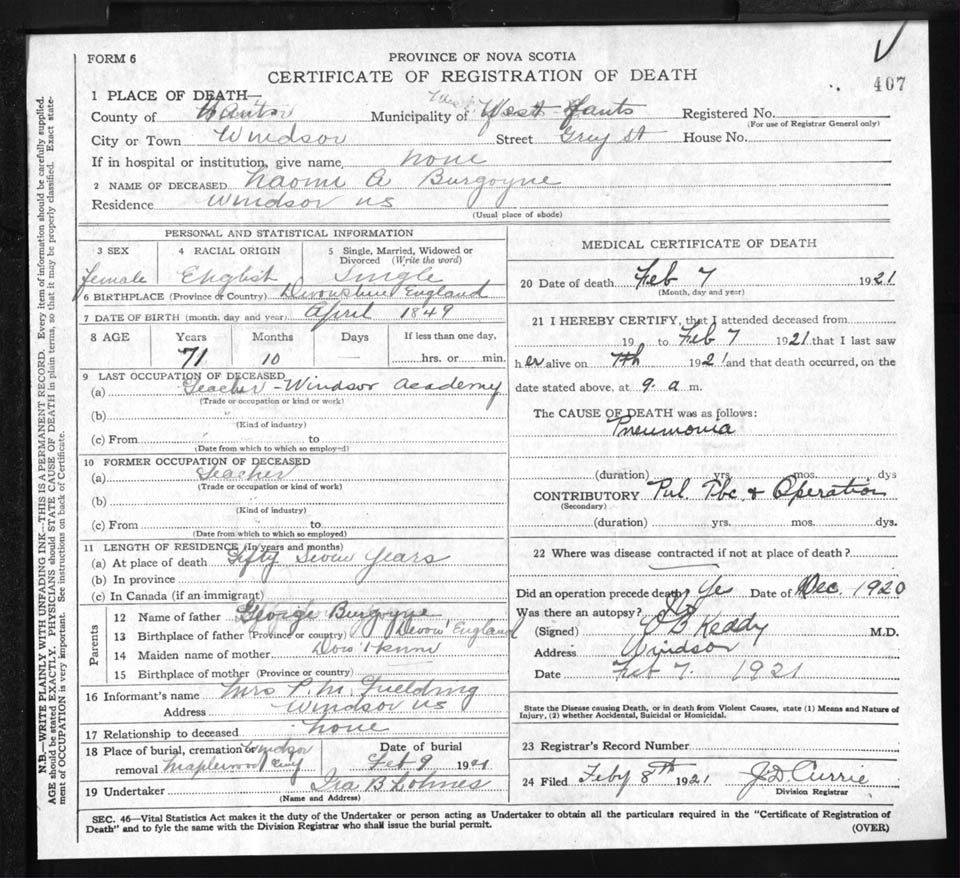 FORM 6
PROVINCE OF NOVA SCOTIA
407
CERTIFICATE OF REGISTRATION OF DEATH
1 PLACE OF DEATH—
County of Hants Municipality of West Hants Registered No.
(For use of Registrar General only)
City or Town Windsor Street Grey St House No.
If in hospital or institution, give name, none
2 NAME OF DECEASED Naomi A Burgoyne
Residence Windsor NS
(Usual place of abode)
PERSONAL AND STATISTICAL INFORMATION
3 SEX 4 RACIAL ORIGIN 5 Single, Married, Widowed or
Divorced (Write the word)
female English Single
6 BIRTHPLACE (Province or Country) Devonshire England
7 DATE OF BIRTH (month, day and year) April 1849
8 AGE Years Months Days If less than one day,
71 10 hrs. or min.
9 LAST OCCUPATION OF DECEASED
(a) Teacher - Windsor Academy
(Trade or occupation or kind or work)
(b)
(Kind of industry)
(c) From to
(Date from which to which so employed)
10 FORMER OCCUPATION OF DECEASED
(a) Teacher
(Trade or occupation or kind of work)
(b)
(Kind of industry)
(c) From to
(Date from which to which so employed)
11 LENGTH OF RESIDENCE (In years and months)
(a) At place of death Fifty Seven Years
(b) In province
(c) In Canada (if an immigrant)
Parents
12 Name of father George Burgoyne
13 Birthplace of father (Province or country) Devon England
14 Maiden name of mother Don't know
15 Birthplace of mother (Province or Country)
16 Informant's name Mrs P. M. Fielding
Address Windsor NS
17 Relationship to deceased none
18 Place of burial, cremation or removal Windsor Maplewood Cmty
Date of burial Feb 9 1921
19 Undertaker Ira B Lohnes
(Name and Address)
MEDICAL CERTIFICATE OF DEATH
20 Date of death Feb 7 1921
(Month, day and year)
21 I HEREBY CERTIFY, that I attended deceased from
19 to Feb 7 1921 that I last saw
her alive on 7th 1921 and that death occurred, on the
date stated above, at 9 a m.
The CAUSE OF DEATH was as follows:
Pneumonia
(duration) yrs. mos. dys
CONTRIBUTORY Pul. Tbc. & Operation
(Secondary)
(duration) yrs. mos. dys.
22 Where was disease contracted if not at place of death?
Did an operation precede death? Yes Date of Dec. 1920
Was there an autopsy? No
(Signed) J B Keddy M.D.
Address Windsor
Date Feb 7. 1921
State the Disease causing Death, or in death from Violent Causes, state (1) Means and Nature of
Injury, (2) whether Accidental, Suicidal or Homicidal.
23 Registrar's Record Number
24 Filed Feby 8th 1921 J.D. Currie
Division Registrar
SEC. 46—Vital Statistics Act makes it the duty of the Undertaker or person acting as Undertaker to obtain all the particulars required in the "Certificate of Registration of
Death" and to fyle the same with the Division Registrar who shall issue the burial permit.
(OVER)
N.B.—WRITE PLAINLY WITH UNFADING INK—THIS IS A PERMANENT RECORD. Every item of information should be carefully supplied.
AGE should be stated EXACTLY. PHYSICIANS should STATE CAUSE OF DEATH in plain terms, so that it may be properly classified. Exact state-
ment of OCCUPATION is very important. See instructions on back of Certificate.